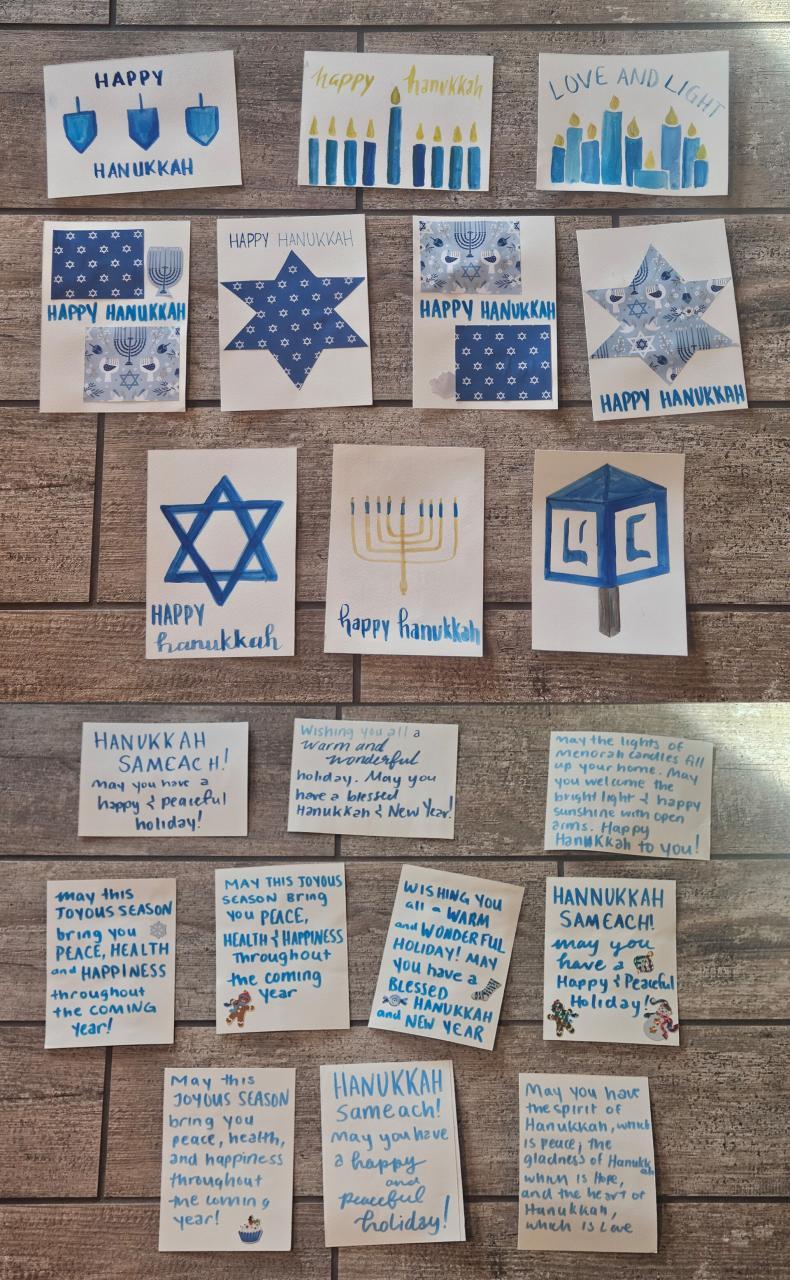 HAPPY
HANUKKAH
happy hanukkah
LOVE AND LIGHT
HAPPY HANUKKAH
HAPPY HANUKKAH
HAPPY HANUKKAH
HAPPY HANUKKAH
HAPPY
hanukkah
happy hanukkah
HANUKKAH
SAMEACH!
may you have a
happy & peaceful
holiday!
Wishing you all a
warm and
wonderful
holiday. May you
have a blessed
Hanukkah & New Year!
may the lights of
menorah candles fill
up your home. May
you welcome the
bright light & happy
sunshine with open
arms. Happy
Hanukkah to you!
may this
JOYOUS SEASON
bring you
PEACE, HEALTH
and HAPPINESS
throughout
the COMING
Year!
MAY THIS JOYOUS
SEASON Bring
you PEACE,
HEALTH & HAPPINESS
Throughout
the coming
year
WISHING YOU
all a WARM
and WONDERFUL
HOLIDAY! MAY
YOU have a
BLESSED
HANUKKAH
and NEW YEAR
HANNUKKAH
SAMEACH!
may you
have a
Happy & Peaceful
Holiday!
May this
JOYOUS SEASON
bring you
peace, health,
and happiness
throughout
the coming
year!
HANUKKAH
Sameach!
may you have
a happy
and
peaceful
holiday!
May you have
the spirit of
Hanukkah, which
is peace; the
gladness of Hanukkah
which is Hope,
and the heart of
Hanukkah,
which is Love